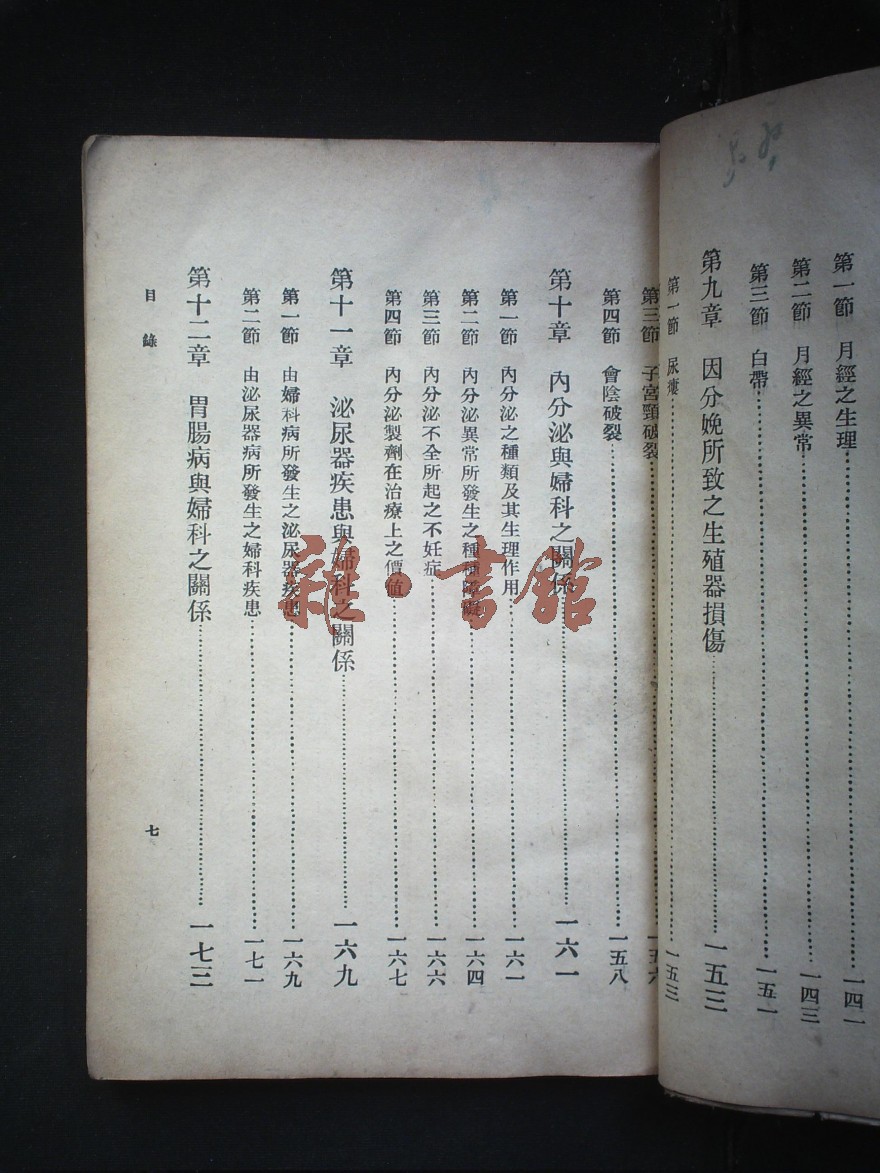 第一節 月經之生理 一四一
第二節 月經之異常 一四三
第三節 白帶 一五一
第九章 因分娩所致之生殖器損傷 一五三
第一節 尿瘻 一五三
第三節 子宮頸破裂 一五六
第四節 會陰破裂 一五八
第十章 內分泌與婦科之關係 一六一
第一節 內分泌之種類及其生理作用 一六一
第二節 內分泌異常所發生之種種障礙 一六四
第三節 內分泌不全所起之不妊症 一六六
第四節 內分泌製劑在治療上之價値 一六七
第十一章 泌尿器疾患與婦科之關係 一六九
第一節 由婦科病所發生之泌尿器疾患 一六九
第二節 由泌尿器病所發生之婦科疾患 一七一
第十二章 胃腸病與婦科之關係 一七三
目錄 七
雜·書館